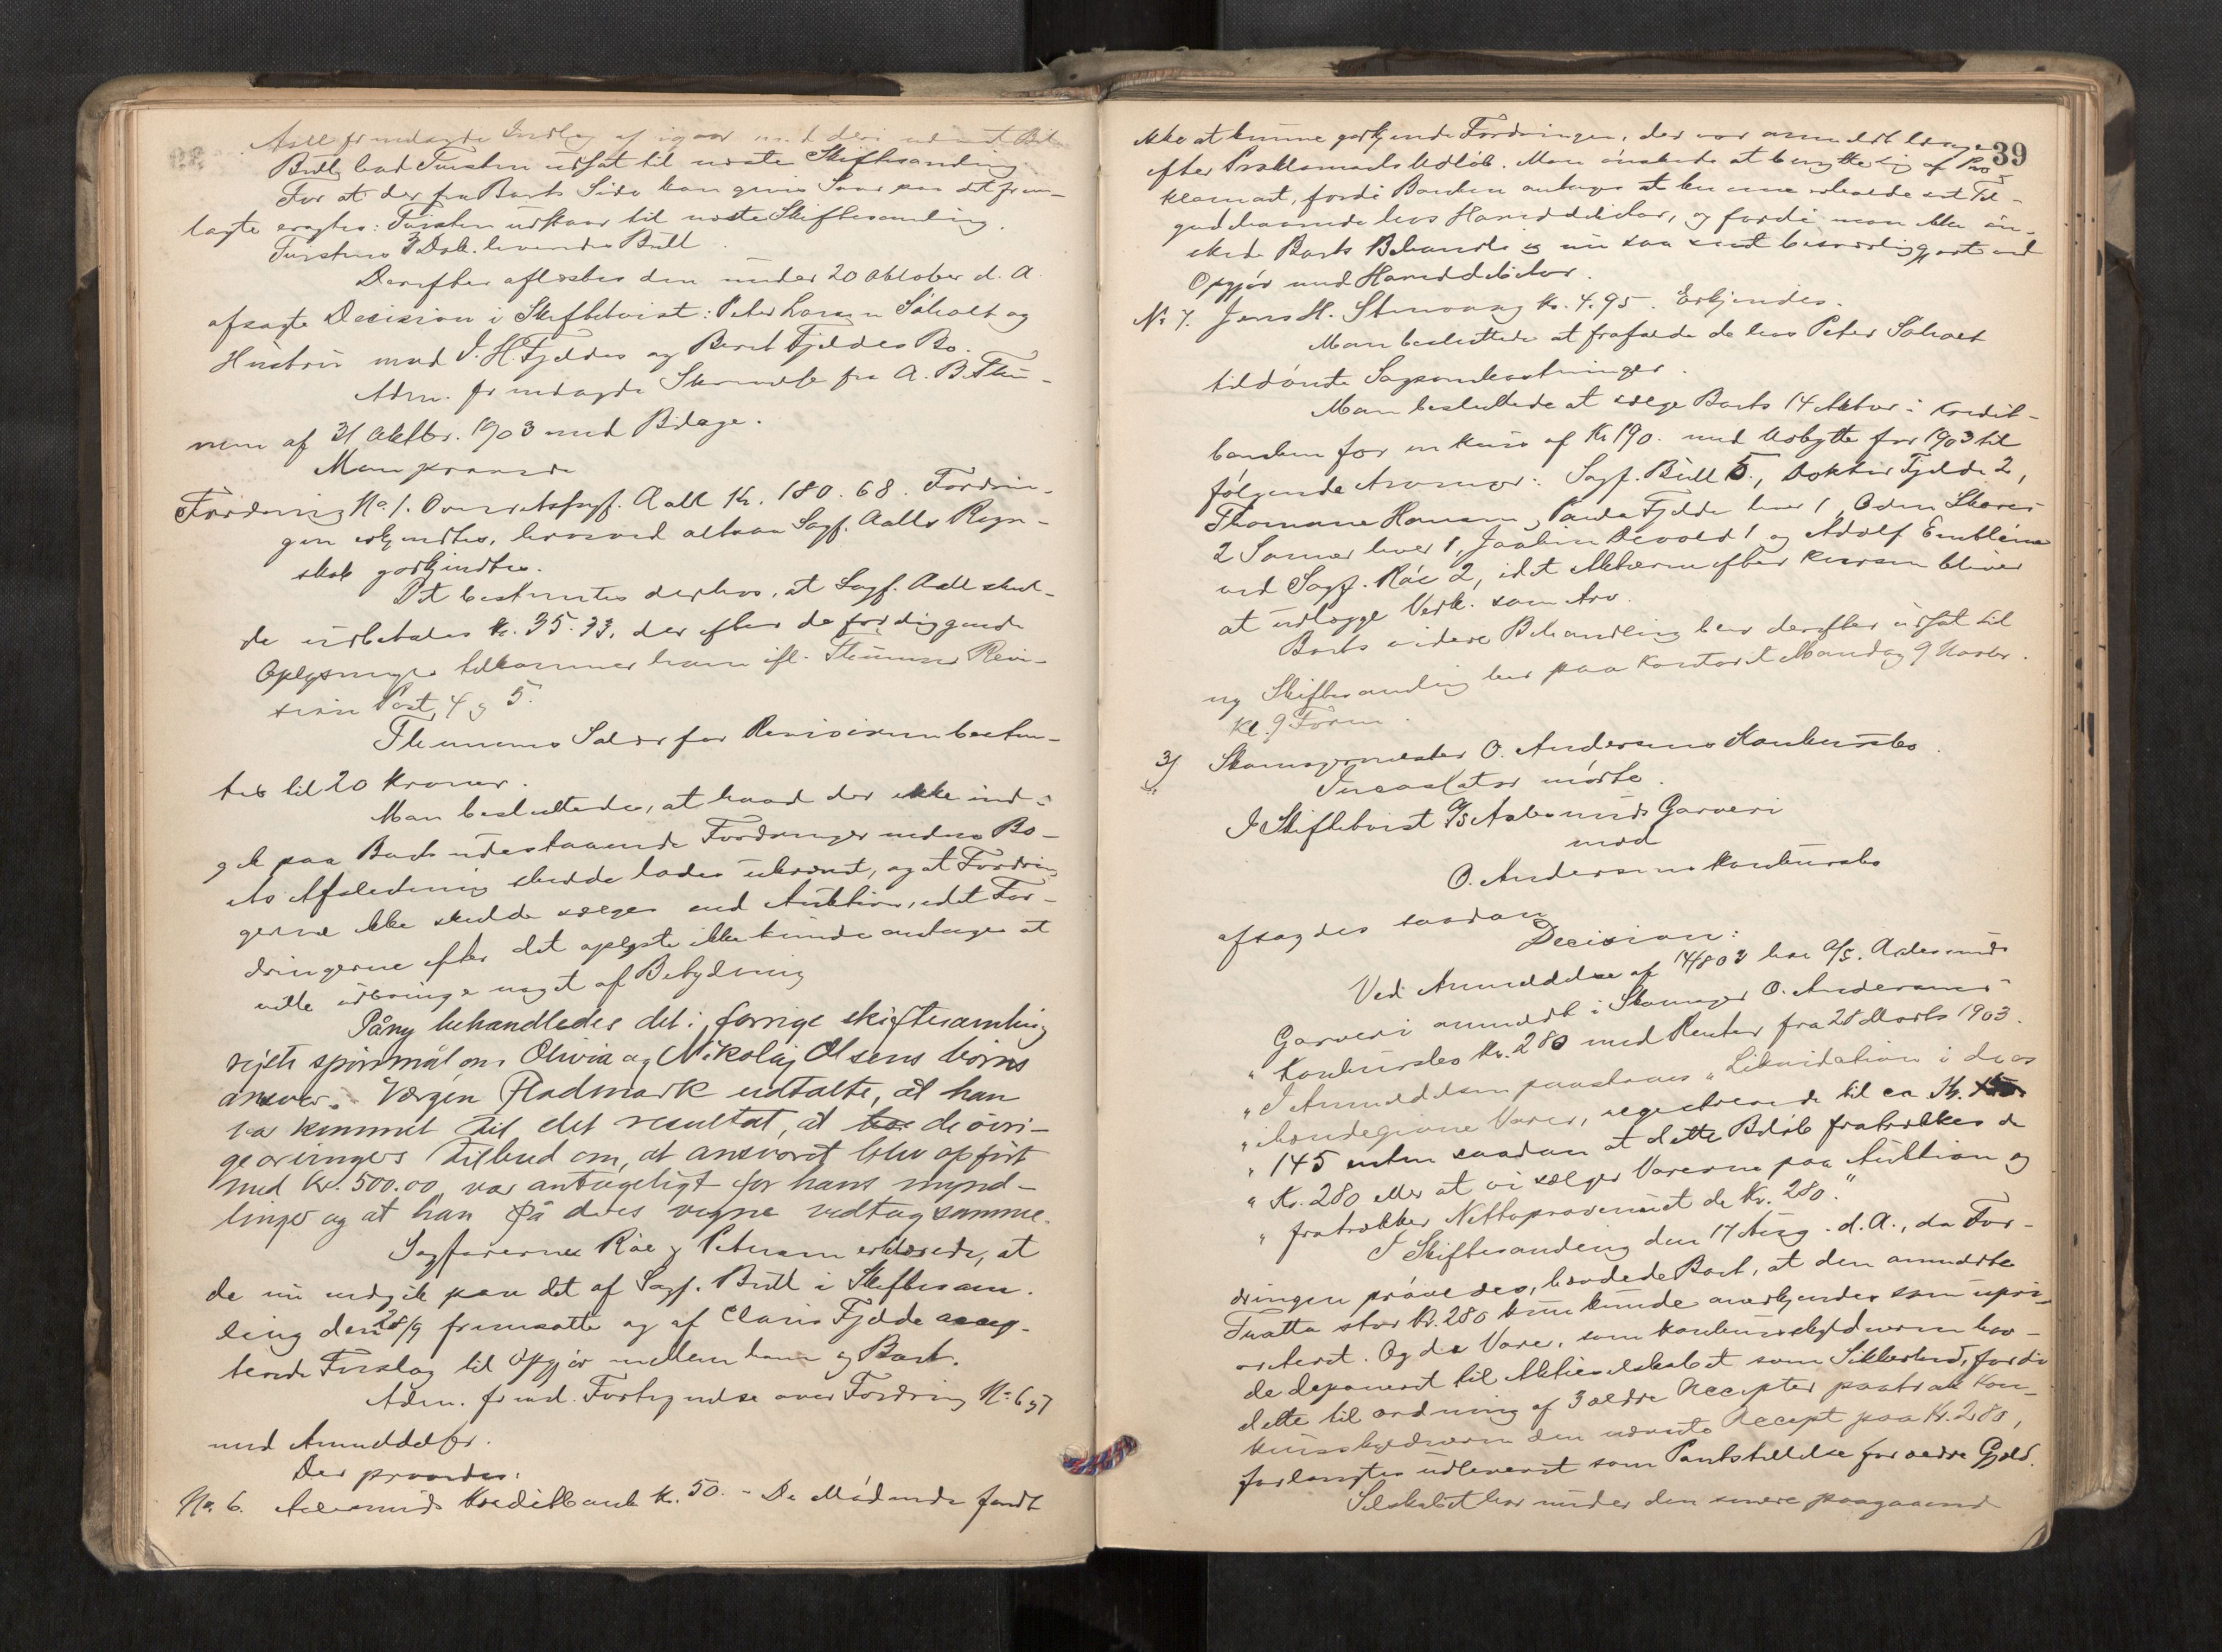 Aall fremlagde Indlæg af igaar med deri nævnt Bilag
Bull bad Tvisten udsat til næste Skiftesamling
For at der fra Boets Side kan gives Svar paa det frem-
lagte eragtes: Tvisten udstaar til næste Skiftesamling.
Tvistens 3 Dok. leveredes Bull.
Derefter aflæstes den under 20 Oktober d. A.
afsagte Decision i Skiftetvist: Peter Larsen Saholt og
Hustru mod J. H. Fjeldes og Berit Fjeldes Bo.
Adm. fremlagde Skrivelse fra A. B. Thu-
nem af 31 Oktbr. 1903 med Bilage.
Man prøvede
Fordring No 1. Overretssagf. Aall Kr. 180.68. Fordrin-
gen erkjendtes, hvorved altsaa Sagf. Aalls Regn-
skab godkjendtes.
Det bestemtes derhos, at Sagf. Aall skul-
de udbetales Kr. 35.33, der efter de foreliggende
Oplysninger tilkommer ham ifl. Thunems Revi-
sion Post 4 og 5.
Thunems Salær for Revisionen bestem-
tes til 20 Kroner.
Man besluttede, at hvad der ikke ind-
gik paa Boets udestaaende Fordringer inden Bo-
ets Afslutning skulde lades ukrævet, og at Fordrin-
gerne ikke skulde sælges ved Auktion, idet For-
dringerne efter det oplyste ikke kunde antages at
ville indbringe noget af Betydning
Påny behandledes det i forrige skiftesamling
rejste spørsmål om Olivia og Nikolaj Olsens børns
ansvar. Værgen Fladmark udtalte, at han
var kommet til det resultat, at de øvri-
ge arvingers tilbud om, at ansvaret blev opført
med Kr. 500.00 var antageligt for hans mynd-
linger og at han på deres vegne vedtog samme.
Sagførerne Råe og Petersen erklærede, at
de nu indgik paa det af Sagf. Bull i Skiftesam-
ling den 28/9 fremsatte og af Claus Fjelde accep-
terede Forslag til Opgjør mellem ham og Boet.
Adm. freml. Fortegnelse over Fordring No 6 og 7
med Anmeldelser.
Der prøvedes:
No. 6. Aalesunds Kreditbank Kr. 50. - De Mødende fandt
39
ikke at kunne godkjende Fordringen, der var anmeldt længe
efter Proklamaets Udløb. Man ønskede at benytte sig af Pro-
klamaet, fordi Banken antages at kunne erholde sit Til-
godehavende hos Hoveddebitor, og fordi man ikke øn-
skede Boets Behandling nu saa sent besværliggjort ved
Opgjør med Hoveddebitor.
No 7. Jens H. Stenvaag Kr. 4.95. Erkjendes.
Man besluttede at frafalde de hos Peter Saholt
tildømte Sagsomkostninger.
Man besluttede at sælge Boets 14 Aktier i Kredit-
banken for en Kurs af Kr 190. med Udbytte for 1903 til
følgende Arvinger: Sagf. Bull 5, Doktor Fjelde 2,
Thomane Hansen, Paula Fjelde hver 1, Oden Skares
2 Sønner hver 1, Joakim Devold 1 og Adolf Emblem
ved Sagf. Råe 2, idet Aktierne efter Kursen bliver
at udlægge Vedk. som Arv.
Boets videre Behandling blev derefter udsat til
ny Skiftesamling her paa Kontoret Mandag 9 Novbr.
Kl. 9 Form.
3) Skomagermester O. Andersens Konkursbo.
Incassator mødte.
I Skiftetvist A/S Aalesunds Garveri
mod
O. Andersens Konkursbo
afsagdes saadan
Decision:
Ved Anmeldelse af 14/8 03 har A/S. Aalesunds
Garveri anmeldt i Skomager O. Andersens
" Konkursbo Kr. 280 med Renter fra 28 Marts 1903.
" I Anmeldelsen paastaaes "Likvidation i de os
" ihændegivne Varer, regnede til ca Kr.
" 145 enten saadan at dette Beløb fratrækkes de
" Kr. 280 eller at vi sælger Varerne paa Auktion og
" fratrækker Nettoprovenuet de Kr. 280."
I Skiftesamling den 17 Aug. d. A., da For-
dringen prøvedes, hævdede Boet, at den anmeldte
Tratta stor Kr. 280 kun kunde anerkjendes som upri-
oriteret. Og de Varer, som Konkursskyldneren hav-
de deponeret til Aktieselskabet som Sikkerhed, fordi
dette til ordning af 3 ældre Accepter paatrak Kon-
kursskyldneren den nævnte Accept paa Kr. 280,
forlangtes udleveret som Pantstillelse for ældre Gjæld.
Selskabet har under den senere paagaaende